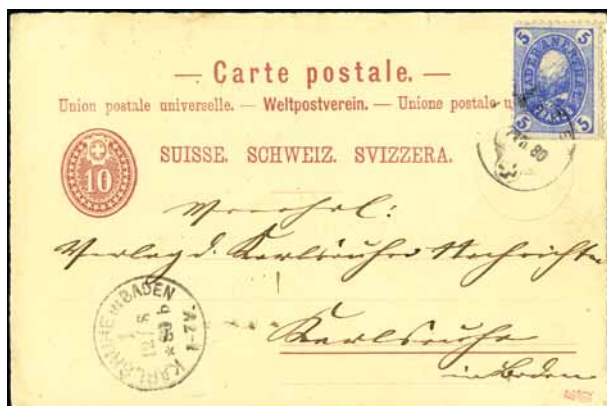 — Carte postale. —
Union postale universelle. — Weltpostverein. — Unione postale u
SUISSE. SCHWEIZ. SVIZZERA.
10
5 5
MADERANERTHAL
5 5
80
Verlag d. Karlsruher Nachrichten
Karlsruhe
in Baden
KARLSRUHE IN BADEN
1
12/8
80